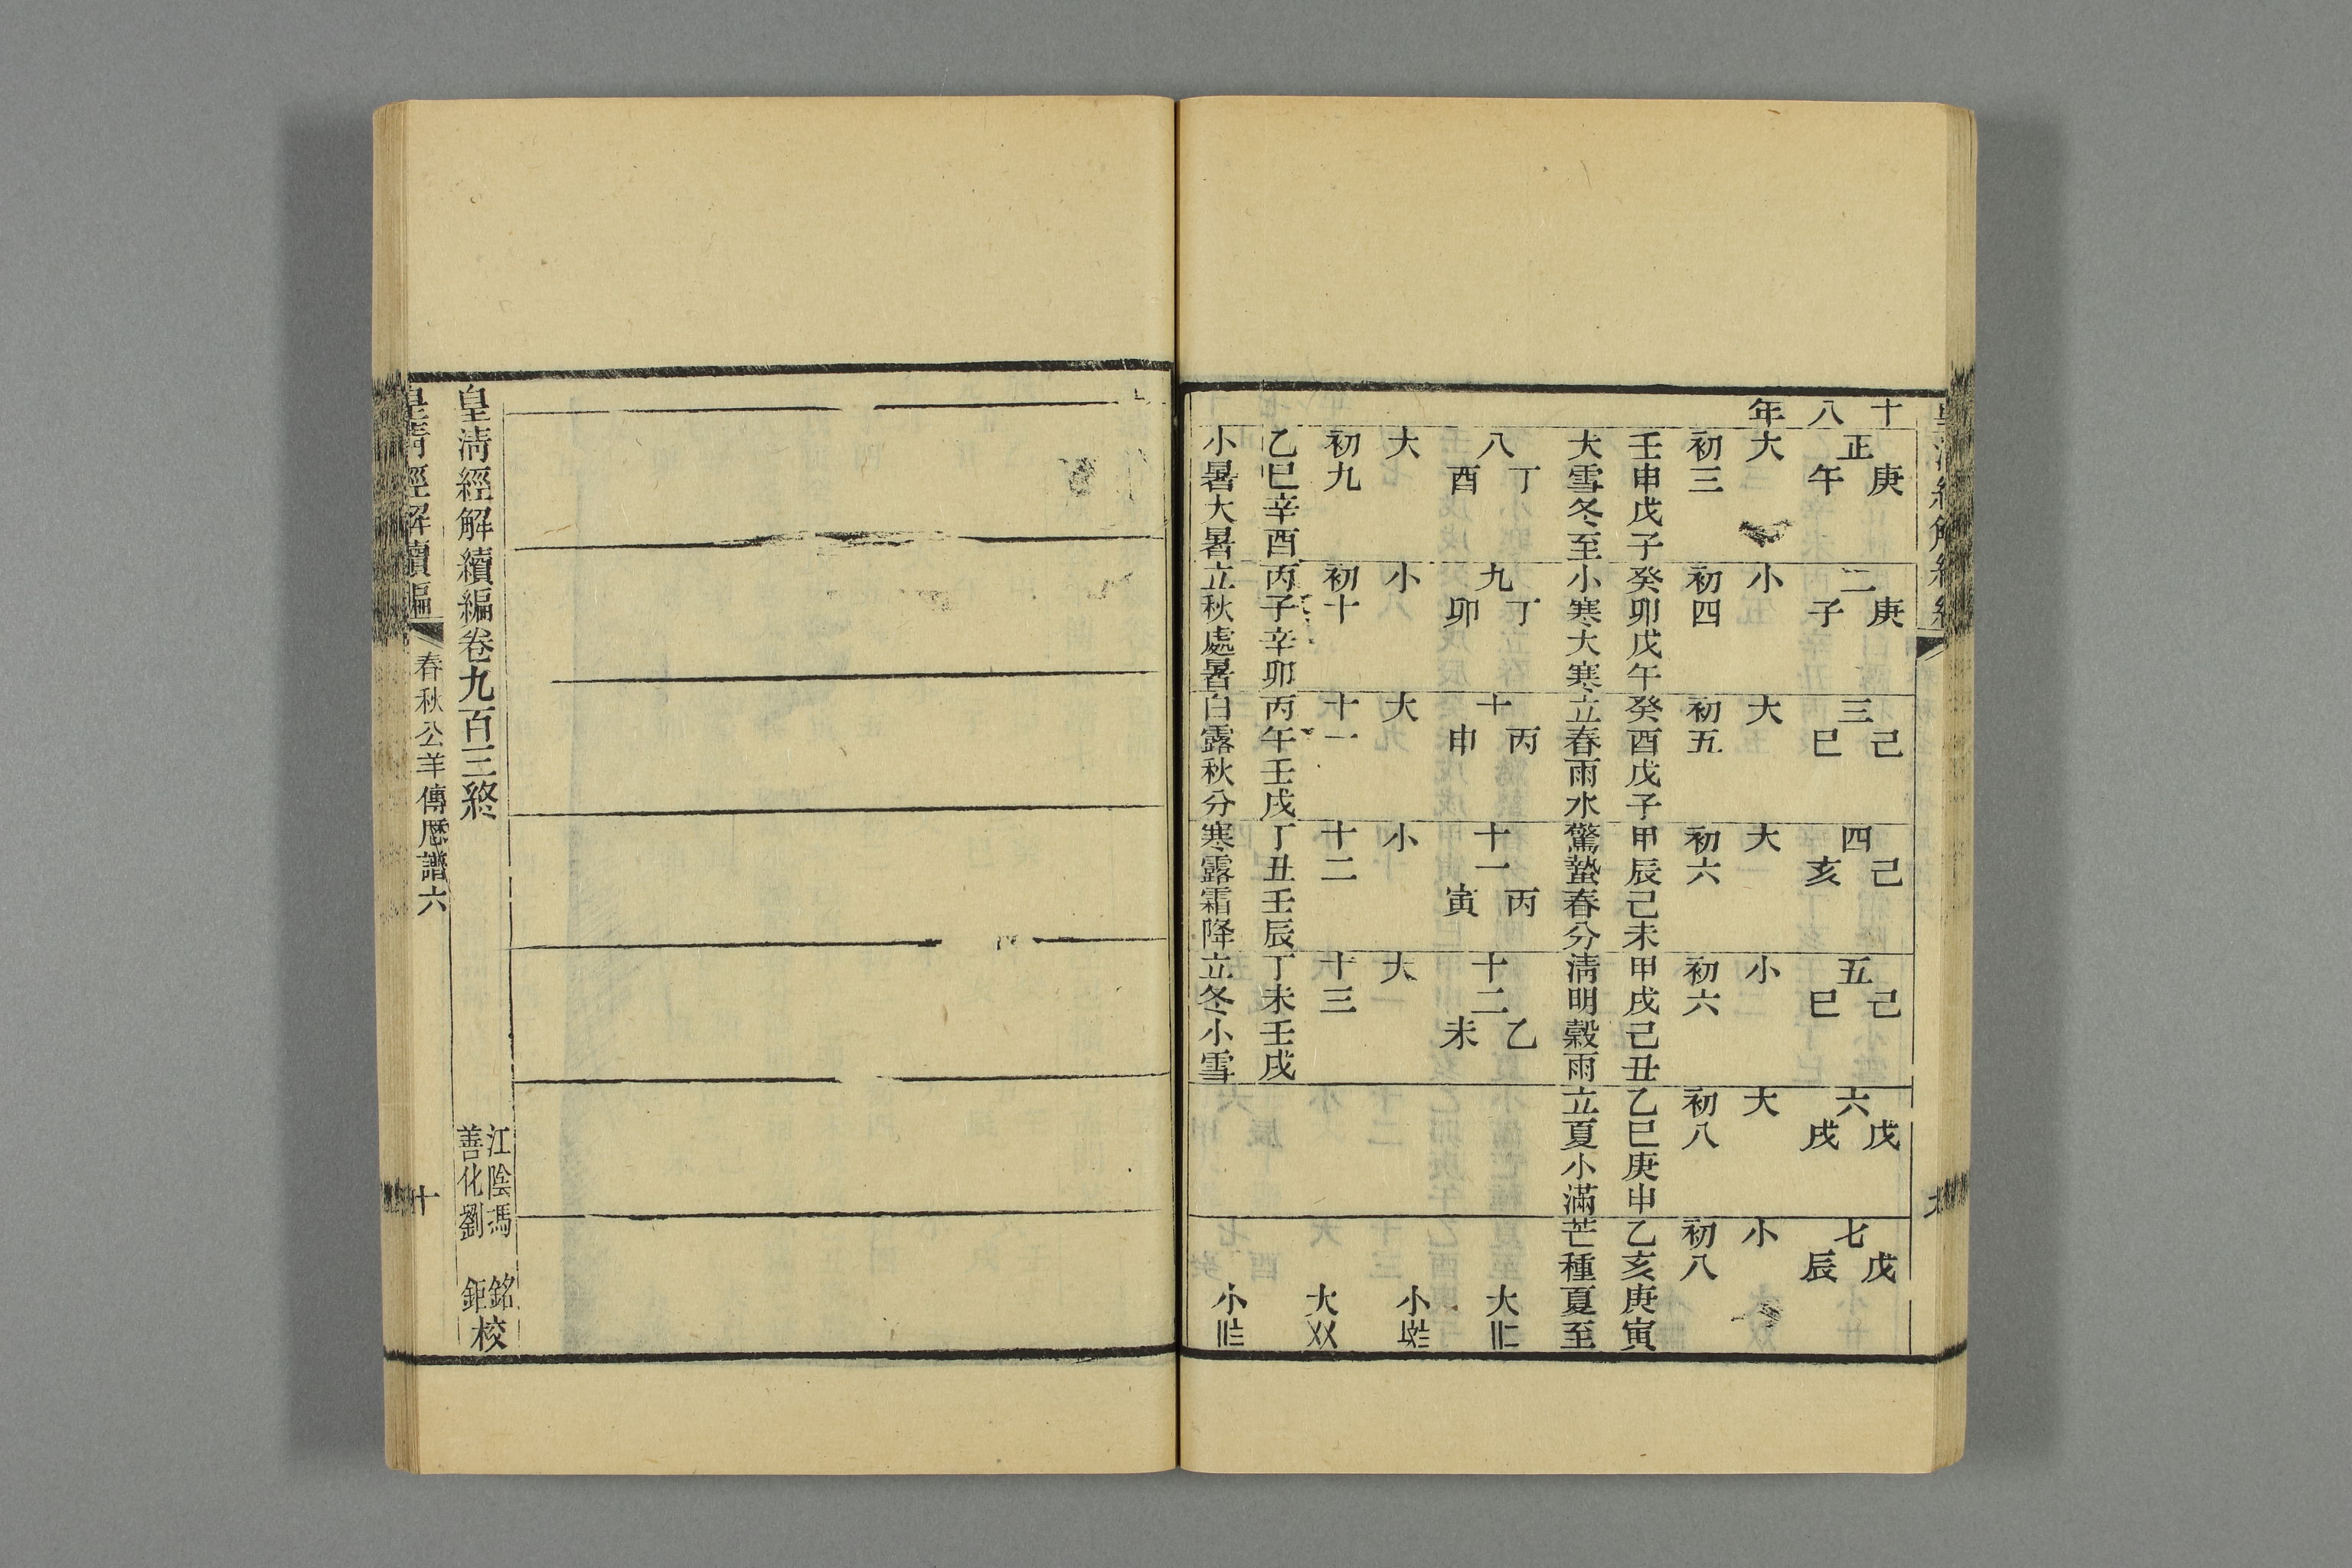 十八年
正 庚午 大 初三 壬申戊子 大雪冬至
二 庚子 小 初四 癸卯戊午 小寒大寒
三 己巳 大 初五 癸酉戊子 立春雨水
四 己亥 大 初六 甲辰己未 驚蟄春分
五 己巳 小 初六 甲戌己丑 淸明穀雨
六 戊戌 大 初八 乙巳庚申 立夏小滿
七 戊辰 小 初八 乙亥庚寅 芒種夏至
八 丁酉 大 初九 乙巳辛酉 小暑大暑
九 丁卯 小 初十 丙子辛卯 立秋處暑
十 丙申 大 十一 丙午壬戌 白露秋分
十一 丙寅 小 十二 丁丑壬辰 寒露霜降
十二 乙未 大 十三 丁未壬戌 立冬小雪
大
小
大
小
皇淸經解續編卷九百三終
江陰馮 銘
善化劉 鉅
校
皇淸經解續編
春秋公羊傳厯譜六
十